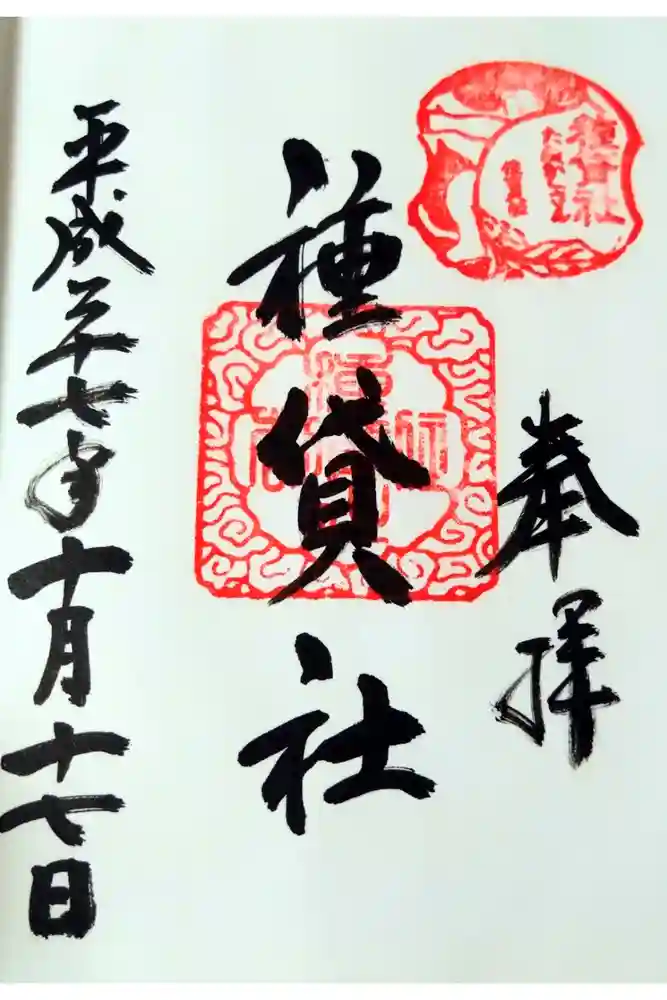 種貸社
奉拝
種貸社
平成二十七年十月十七日